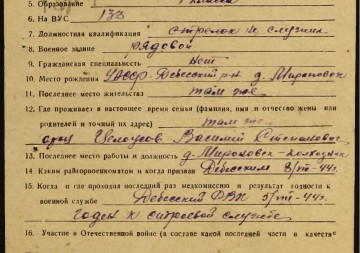 5. Образование
6. На ВУС 133
7. Должностная квалификация стрелок не служил
8. Военное звание рядовой
9. Гражданская специальность нет
10. Место рождения УАССР Дебесский р-н д. Мироновск
11. Последнее место жительства там же
12. Где проживает в настоящее время семья (фамилия, имя и отчество жены или
родителей и точный их адрес) там же
Василий Степанович
13. Последнее место работы и должность д. Мироновск - колхозник
14. Каким райгорвоенкоматом и когда призван Дебесским 8/VIII-44г.
15. Когда и где проходил последний раз медкомиссию и результат годности к
военной службе Дебесский РВК 5/VIII-44г.
годен к строевой службе
16. Участие в Отечественной войне (в составе какой последней части в качестве